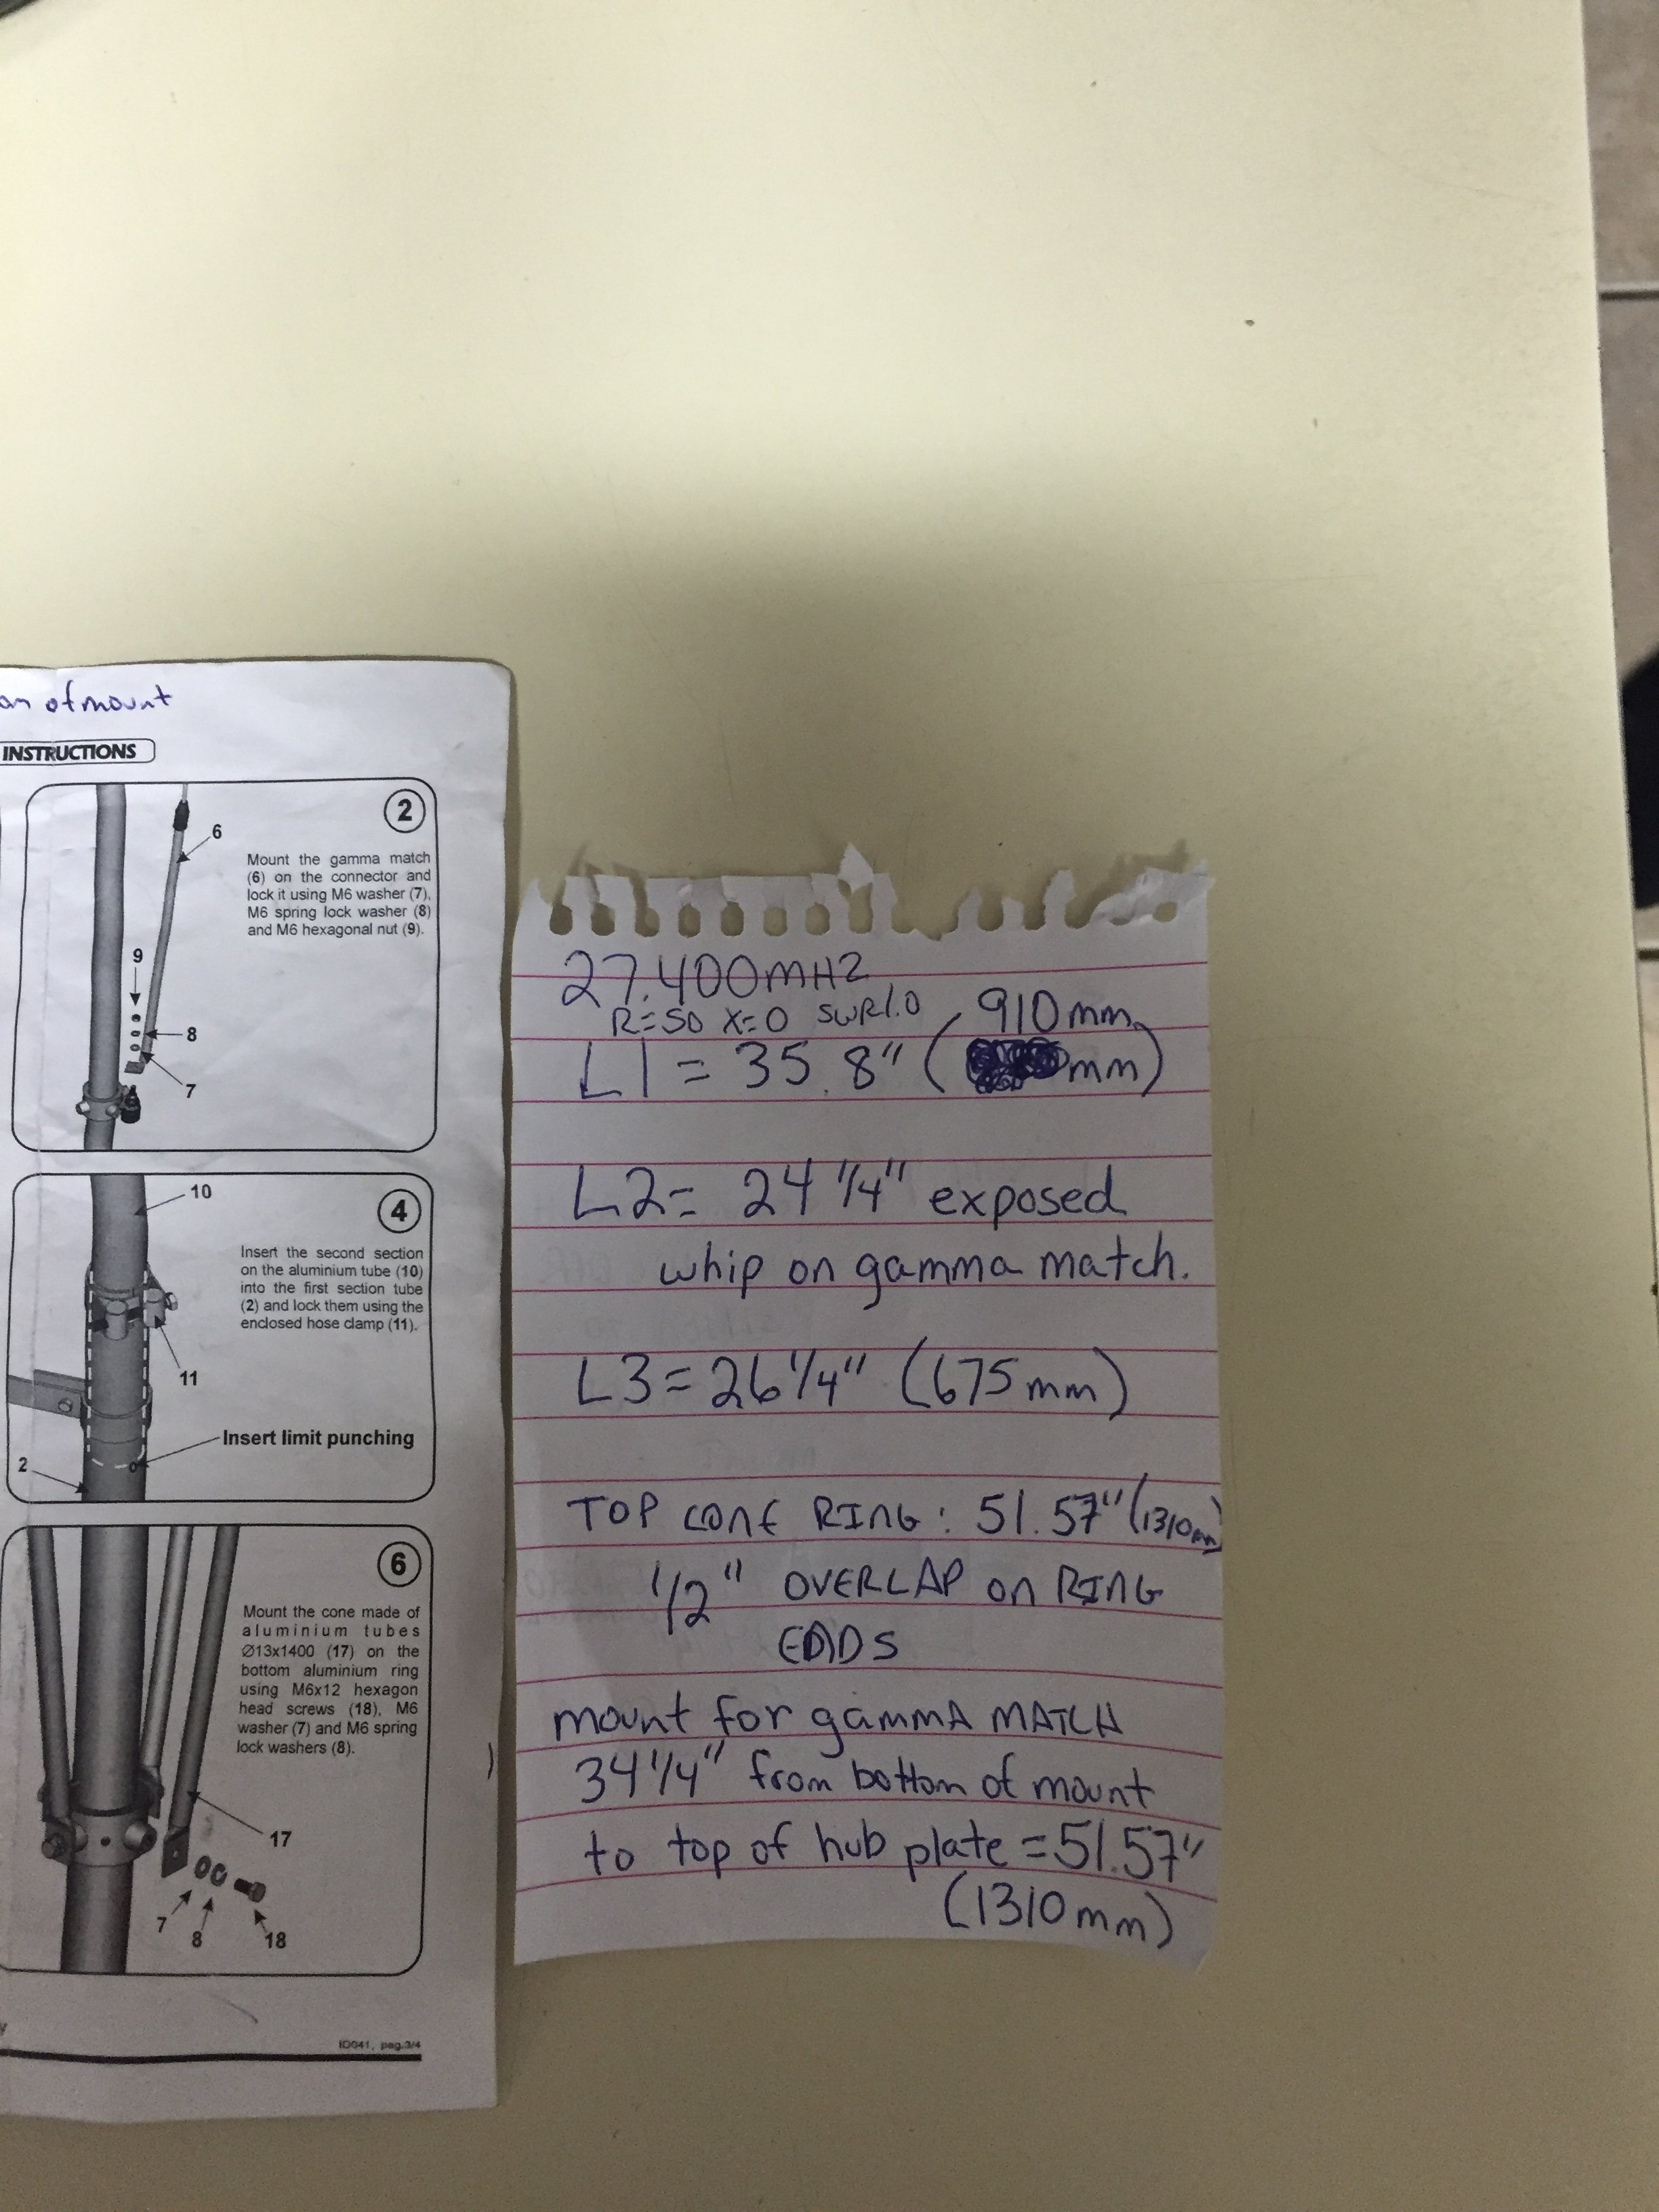 of mount
INSTRUCTIONS
2
6
Mount the gamma match
(6) on the connector and
lock it using M6 washer (7),
M6 spring lock washer (8)
and M6 hexagonal nut (9).
9
8
7
10
4
Insert the second section
on the aluminium tube (10)
into the first section tube
(2) and lock them using the
enclosed hose clamp (11).
11
Insert limit punching
2
6
Mount the cone made of
aluminium tubes
Ø13x1400 (17) on the
bottom aluminium ring
using M6x12 hexagon
head screws (18), M6
washer (7) and M6 spring
lock washers (8).
17
7
8
18
ID041, pag.3/4
27.400MHZ
R=50 X=0 SWR1.0
910mm
L1 = 35.8" ( mm)
L2= 24 1/4" exposed
whip on gamma match.
L3= 26 1/4" (675mm)
TOP CONE RING: 51.57" (1310mm)
1/2" OVERLAP on RING
ENDS
mount for gamma MATCH
34 1/4" from bottom of mount
to top of hub plate = 51.57"
(1310mm)